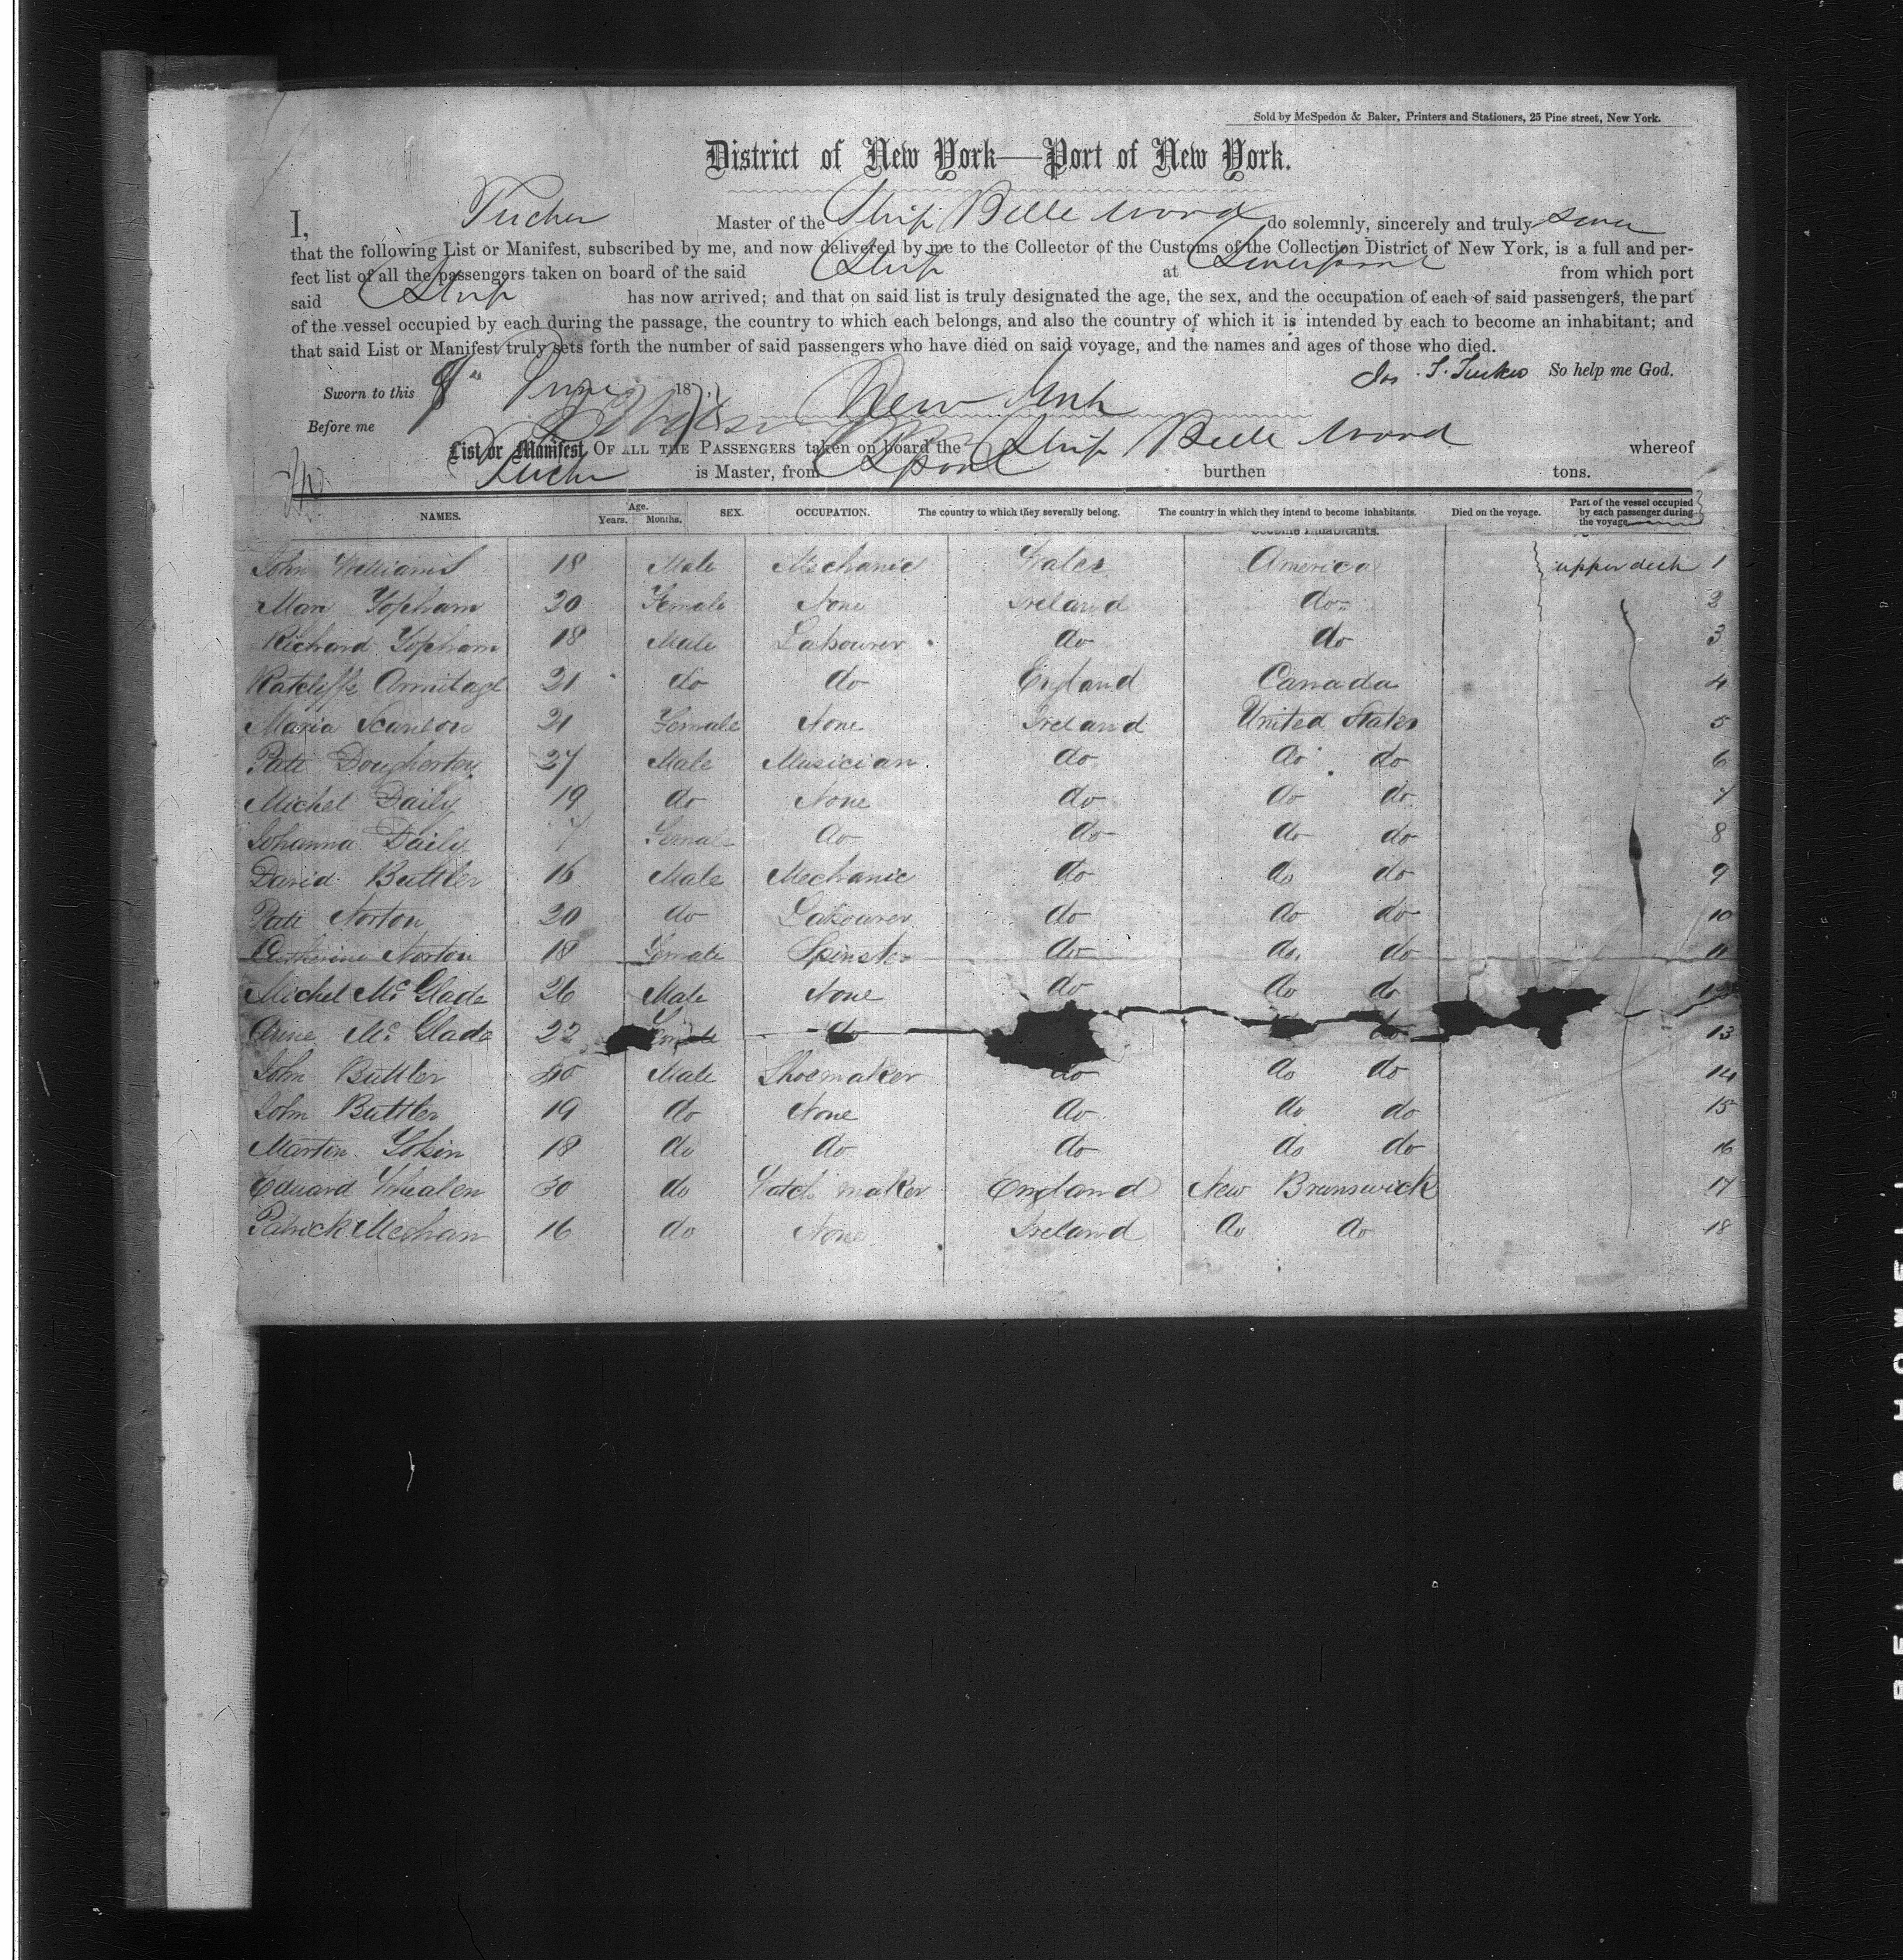 Sold by McSpedon & Baker, Printers and Stationers, 25 Pine street, New York.
District of New York—Port of New York.
I, Tucker Master of the Ship Belle Wood do solemnly, sincerely and truly swear
that the following List or Manifest, subscribed by me, and now delivered by me to the Collector of the Customs of the Collection District of New York, is a full and per-
fect list of all the passengers taken on board of the said Ship at Liverpool from which port
said Ship has now arrived; and that on said list is truly designated the age, the sex, and the occupation of each of said passengers, the part
of the vessel occupied by each during the passage, the country to which each belongs, and also the country of which it is intended by each to become an inhabitant; and
that said List or Manifest truly sets forth the number of said passengers who have died on said voyage, and the names and ages of those who died.
Jos. T. Tucker So help me God.
Sworn to this 8th June 18
New York
Before me
List or Manifest OF ALL THE PASSENGERS taken on board the Ship Belle Wood whereof
Tucker is Master, from Lpool burthen tons.
NAMES. Age. Years. Months. SEX. OCCUPATION. The country to which they severally belong. The country in which they intend to become inhabitants. Died on the voyage. Part of the vessel occupied by each passenger during the voyage
become inhabitants.
John Williams 18 Male Mechanic Wales America upper deck 1
Mary Topham 20 Female None Ireland do 2
Richard Topham 18 Male Labourer do do 3
Ratcliffe Armitage 21 do do England Canada 4
Maria Scanlon 21 Female None Ireland United States 5
Patt Dougherty 27 Male Musician do do do 6
Michel Daily 19 do None do do do 7
Johanna Daily 7 Female do do do do 8
David Buttler 16 Male Mechanic do do do 9
Patt Norton 20 do Labourer do do do 10
Catherine Norton 18 Female Spinster do do do 11
Michel McGlade 26 Male None do do do 12
Anne McGlade 22 Female do do 13
John Buttler 40 Male Shoemaker do do do 14
John Buttler 19 do None do do do 15
Martin 18 do do do do do 16
Edward Whealen 30 do Watch maker England New Brunswick 17
Patrick Meehan 16 do None Ireland do do 18
BELL & HOWELL